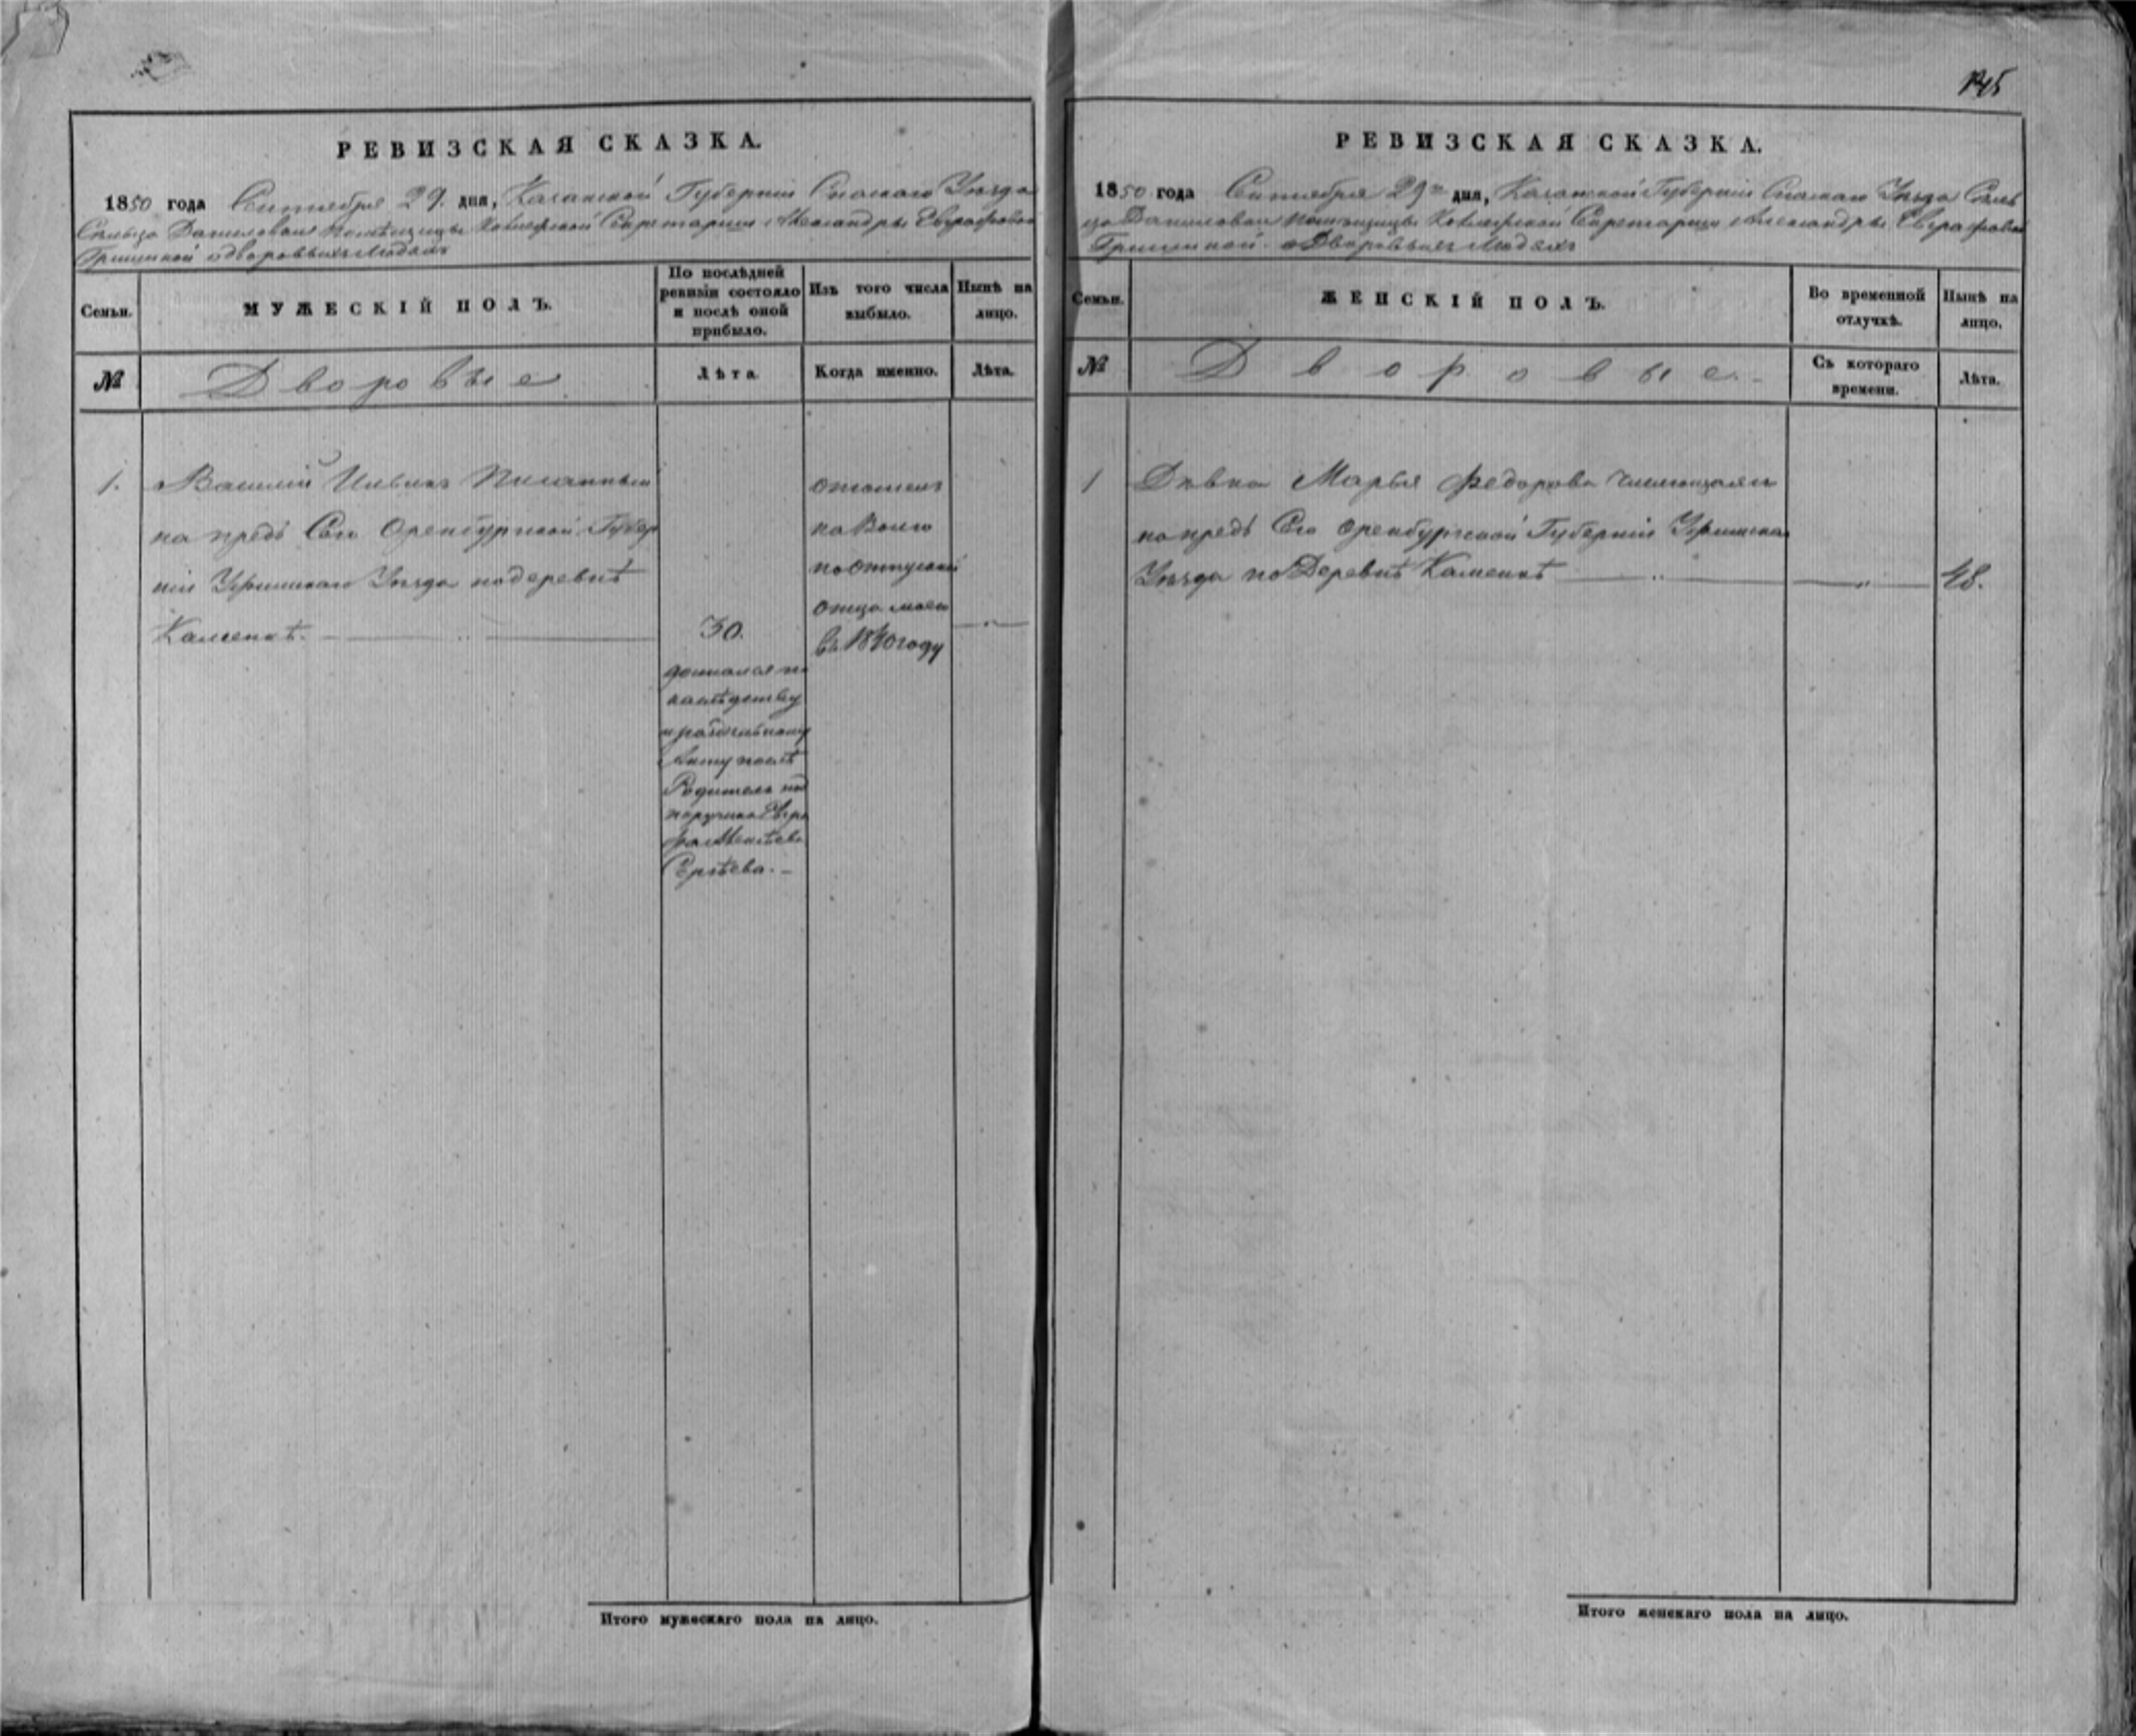 145
РЕВИЗСКАЯ СКАЗКА.
1850 года Сентября 29. дня, Казанской Губерніи Спаскаго Уѣзда
Сельца Даниловки Помѣщицы Колежской Секретарши Александры Евграфовой
Грицкиной о дворовыхъ Людяхъ
Семьи.
МУЖЕСКІЙ ПОЛЪ.
По послѣдней
ревизіи состояло
и послѣ оной
прибыло.
Изъ того числа
выбыло.
Нынѣ на
лицо.
№
Дворовые
Лѣта
Когда именно.
Лѣта.
1. Василій Писанный
на предъ Сего Оренбургской Губер
ніи Уфимскаго Уѣзда по деревнѣ
Каменкѣ.
30.
достался по
наслѣдству
и раздѣльному
Акту послѣ
Родителя под
поручика Евгра
фа Алексѣева
Сергѣева.
отпущенъ
на Волю
по отпускной
отца моего
въ 1840 году
Итого мужескаго пола на лицо.
РЕВИЗСКАЯ СКАЗКА.
1850 года Сентября 29го дня, Казанской Губерніи Спаскаго Уѣзда Сель
ца Даниловки Помѣщицы Колежской Секретарши Александры Евграфовой
Грицкиной о Дворовыхъ Людяхъ
Семьи.
ЖЕНСКІЙ ПОЛЪ.
Во временной
отлучкѣ.
Нынѣ на
лицо.
№
Дворовые
Съ котораго
времени.
Лѣта.
1 Дѣвка Марья Федорова числющаяся
на предъ Сего Оренбургской Губерніи Уфимскаго
Уѣзда по Деревнѣ Каменкѣ
48.
Итого женскаго пола на лицо.